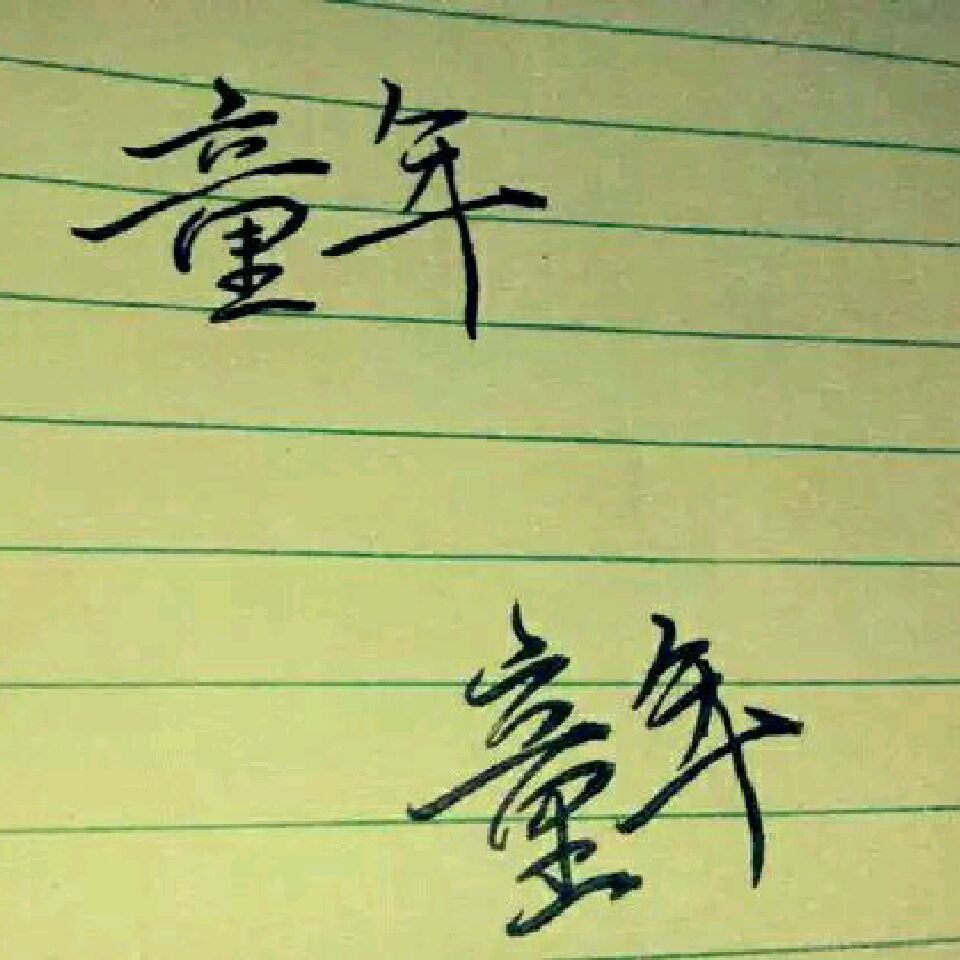 童年
童年